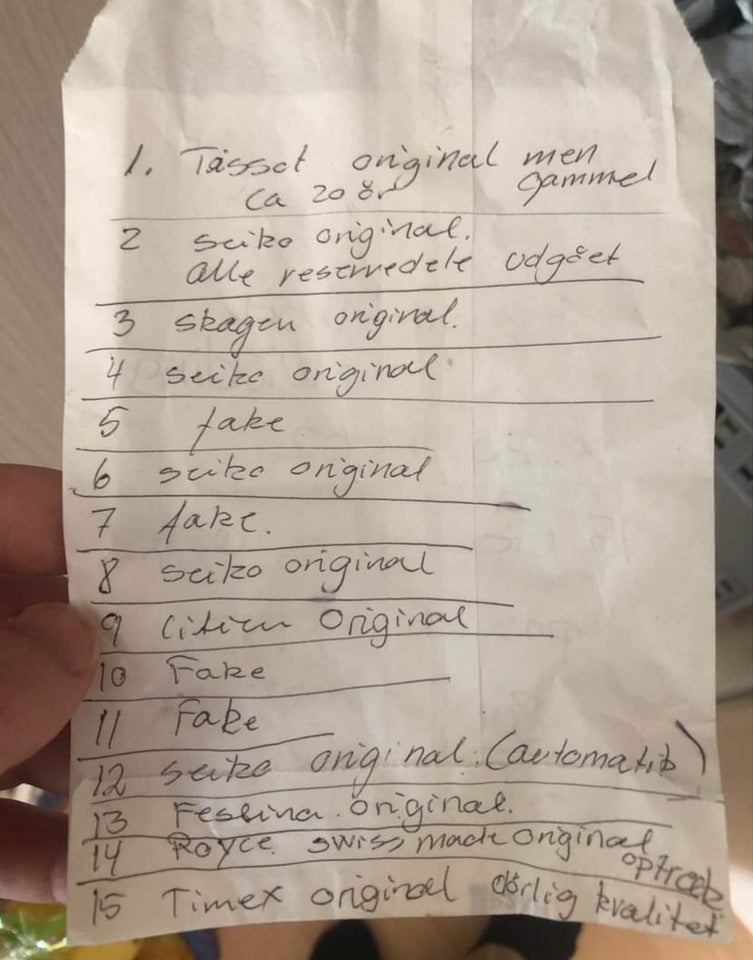 1. Tissot original men
ca 20 år gammel
2 seiko original.
alle reservedele udgået
3 skagen original.
4 seiko original
5 fake
6 seiko original
7 fake.
8 seiko original
9 Citizen Original
10 Fake
11 Fake
12 seiko original. (automatik)
13 Festina. original.
14 Royce. swiss made original
optræk
15 Timex original dårlig kvalitet